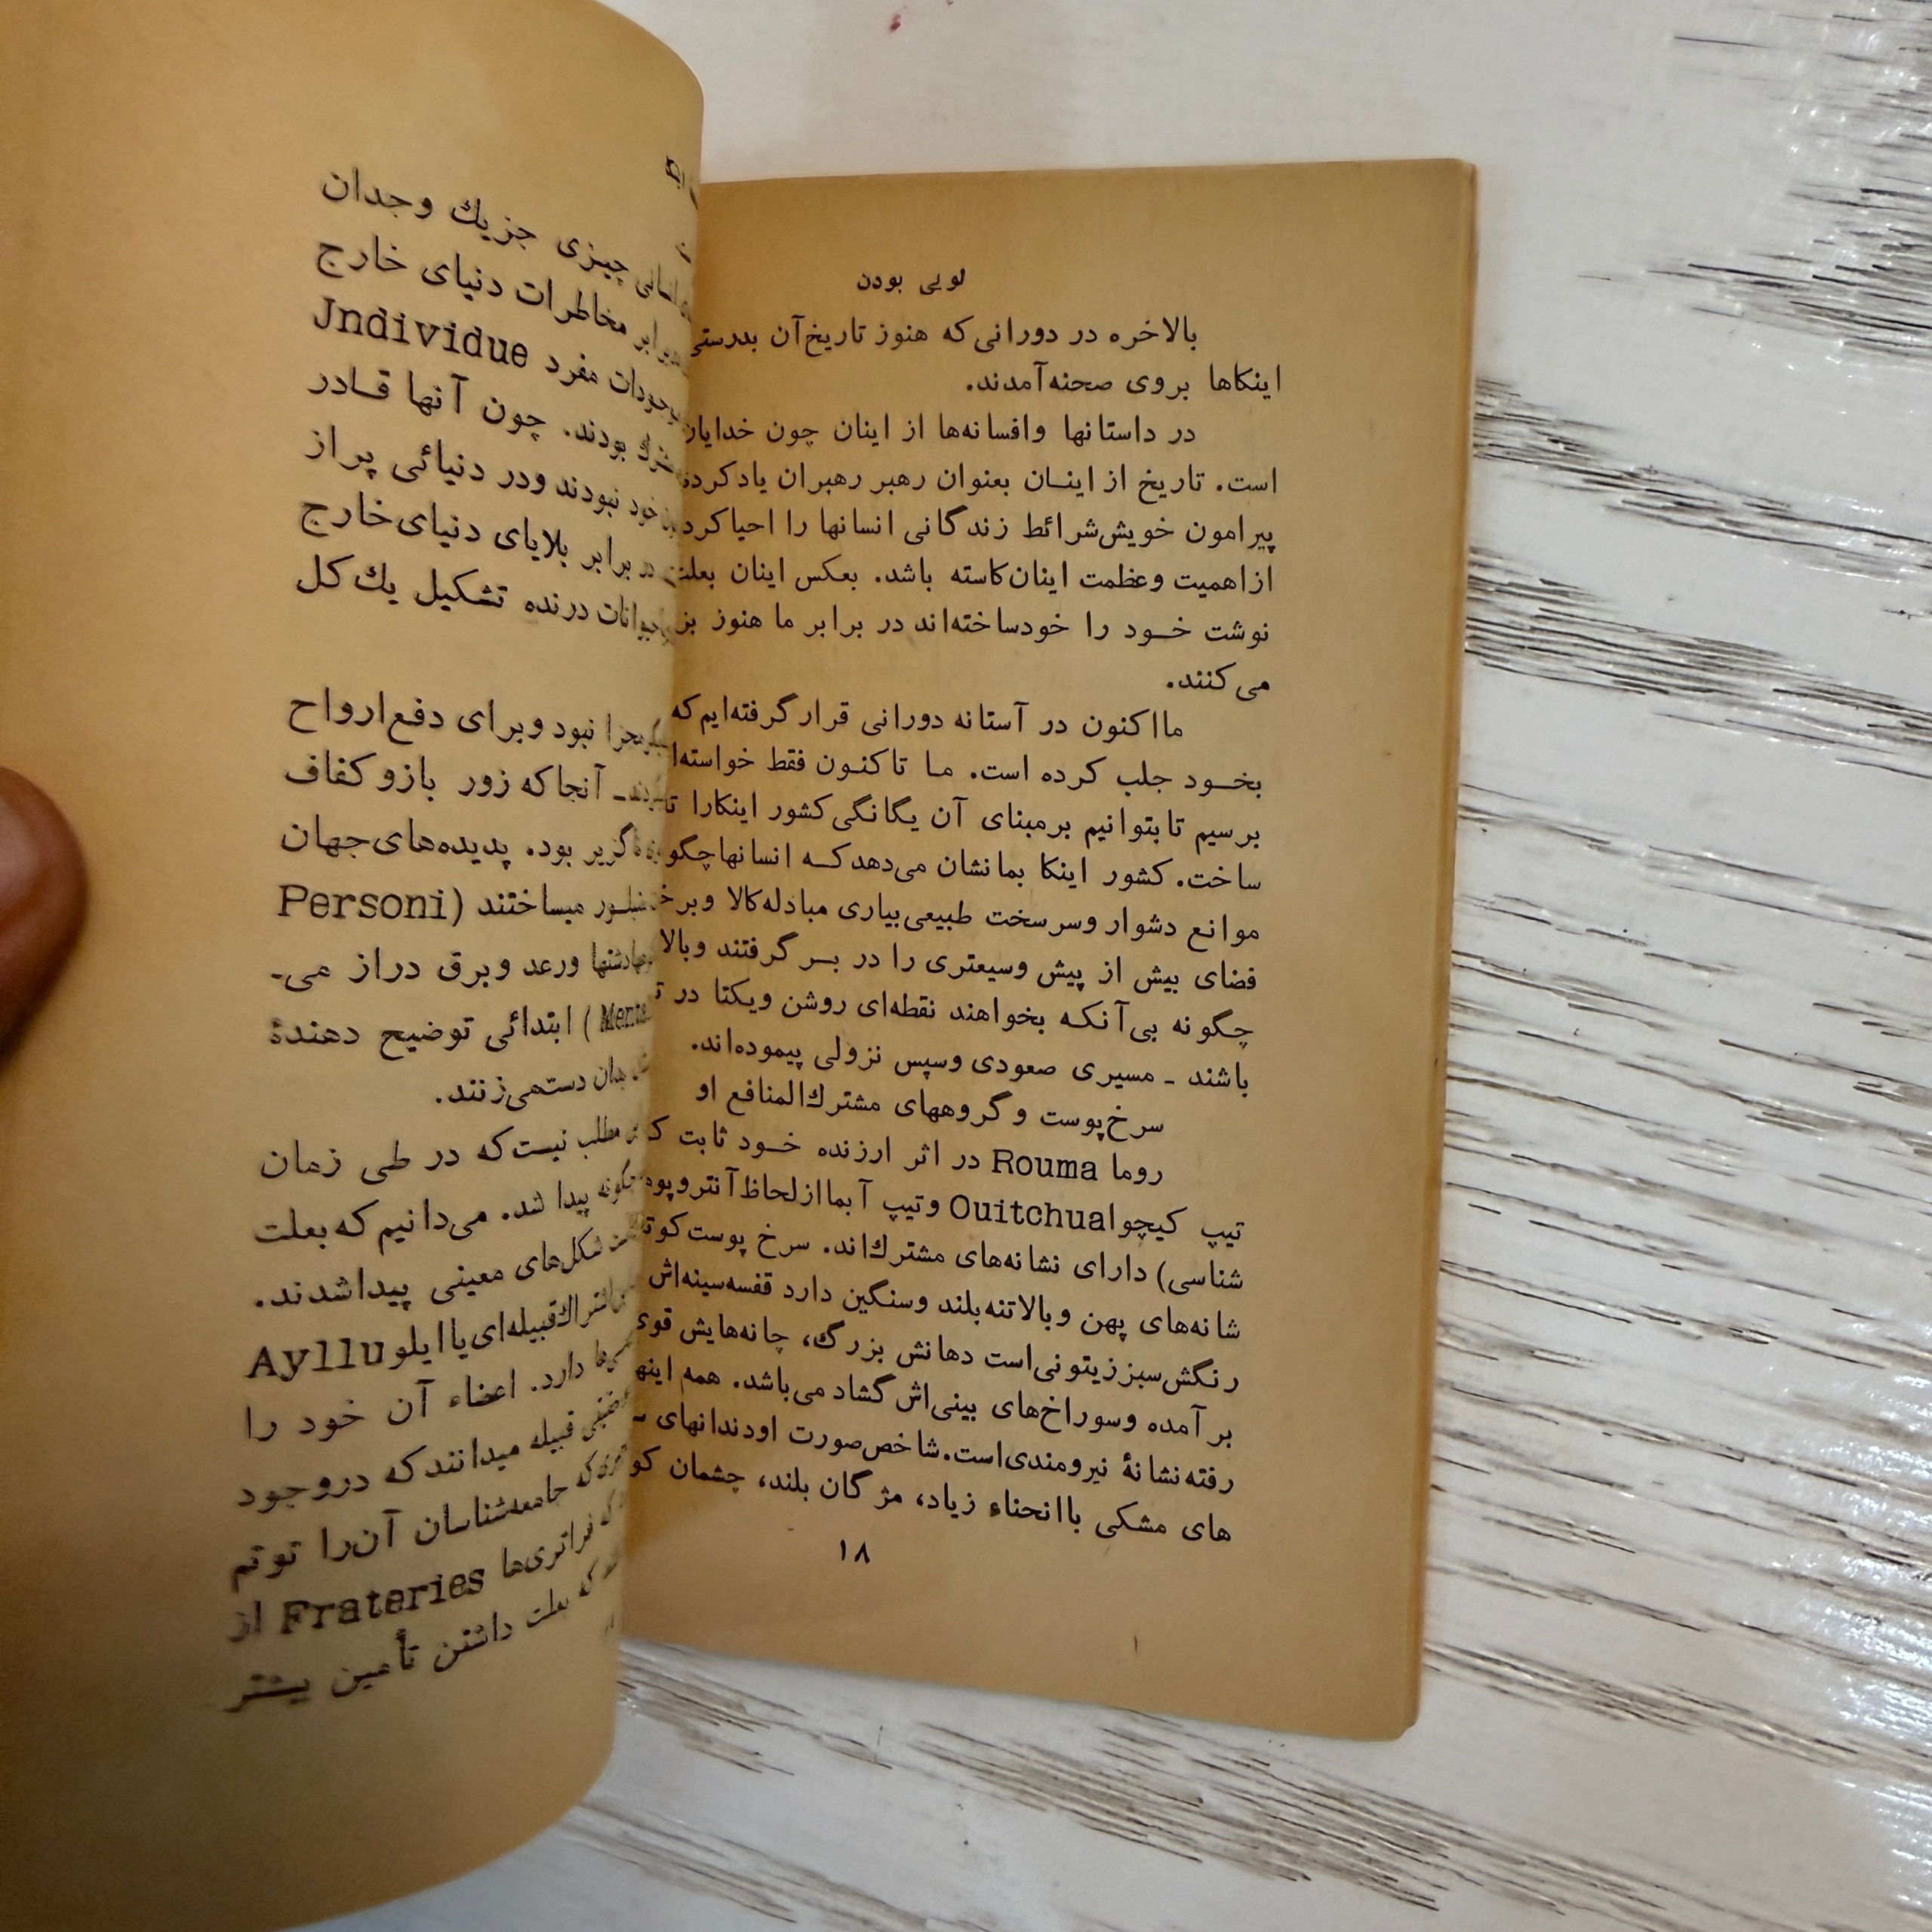 لویی بودن
بالاخره در دورانی‌که هنوز تاریخ‌آن بدرستی
اینکاها بروی صحنه‌آمدند.
در داستانها وافسانه‌ها از اینان چون خدایان
است. تاریخ از اینان بعنوان رهبر رهبران یادکرده
پیرامون خویش‌شرائط زندگانی انسانها را احیاکرد
ازاهمیت وعظمت اینان‌کاسته باشد. بعکس اینان بعلت
نوشت خود را خودساخته‌اند در برابر ما هنوز
می‌کنند.
مااکنون در آستانه دورانی قرارگرفته‌ایم‌که
بخود جلب کرده است. ما تاکنون فقط
برسیم تابتوانیم برمبنای آن یگانگی‌کشور اینکارا
ساخت. کشور اینکا بمانشان می‌دهدکه انسانها
موانع دشوار وسرسخت طبیعی‌بیاری مبادله‌کالا
فضای بیش از پیش وسیعتری را در بر گرفتند
چگونه بی‌آنکه بخواهند نقطه‌ای روشن ویکتا در
باشند - مسیری صعودی وسپس نزولی پیموده‌اند.
سرخ‌پوست وگروههای مشترك‌المنافع او
روما Rouma در اثر ارزنده خود ثابت
تیپ کیچوا Ouitchua وتیپ آبماازلحاظ
شناسی) دارای نشانه‌های مشترك‌اند. سرخ پوست
شانه‌های پهن وبالاتنه‌بلند وسنگین دارد قفسه‌سینه‌اش
رنگش‌سبززیتونی‌است دهانش بزرگ، چانه‌هایش قوی
برآمده وسوراخ‌های بینی‌اش گشاد می‌باشد. همه
رفته‌نشانهٔ نیرومندی‌است.شاخص‌صورت اودندانهای
های مشکی باانحناء زیاد، مژگان بلند، چشمان
۱۸
چیزی جزیك وجدان
مخاطرات دنیای خارج
مفرد Jndividue
بودند. چون آنها قادر
خود نبودند ودر دنیائی پراز
برابر بلایای دنیای‌خارج
درنده تشکیل یك‌کل
نبود وبرای دفع‌ارواح
آنجاکه زور بازوکفاف
بود. پدیده‌های‌جهان
میساختند (Personi
ورعد وبرق دراز می-
ابتدائی توضیح دهندهٔ
دست‌می‌زنند.
مطلب نیست‌که در طی زمان
پیدا شد. می‌دانیم که‌بعلت
شکل‌های معینی پیداشدند.
قبیله‌ای‌یاایلو Ayllu
دارد. اعضاء آن خود را
قبیله میدانندکه دروجود
جامعه‌شناسان آن‌را توتم
فراتری‌ها Frateries از
بعلت داشتن تأمین بیشتر